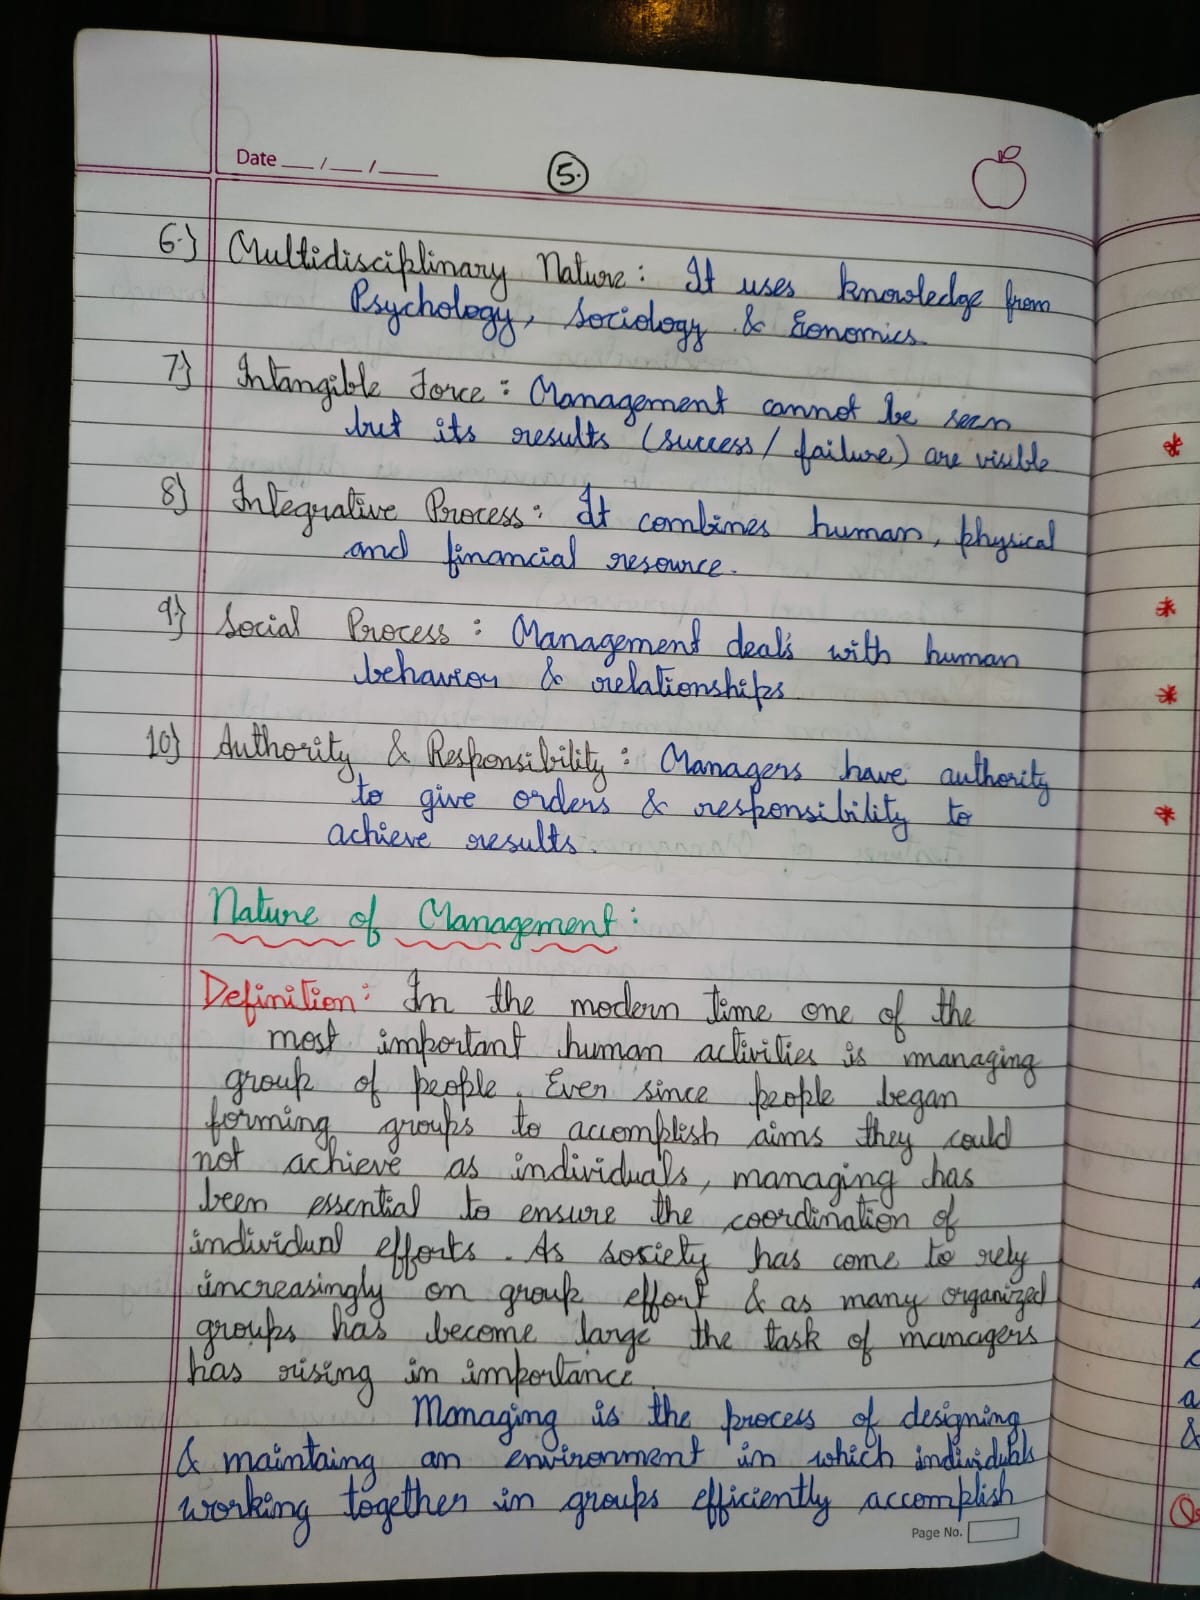 Date __/__/____
5.
6.} Multidisciplinary Nature : It uses knowledge from
Psychology, Sociology & Eonomics.
7.} Intangible Force : Management cannot be seen
but its results (success / failure) are visible
8} Integrative Process : It combines human, physical
and financial resource.
9.} Social Process : Management deals with human
behavior & relationships.
10} Authority & Responsibility : Managers have authority
to give orders & responsibility to
achieve results.
Nature of Management :
Definition : In the modern time one of the
most important human activities is managing
group of people. Ever since people began
forming groups to accomplish aims they could
not achieve as individuals, managing has
been essential to ensure the coordination of
individual efforts. As society has come to rely
increasingly on group effort & as many organized
groups has become large the task of managers
has rising in importance.
Managing is the process of designing
& maintaing an environment in which individuals
working together in groups efficiently accomplish
Page No.